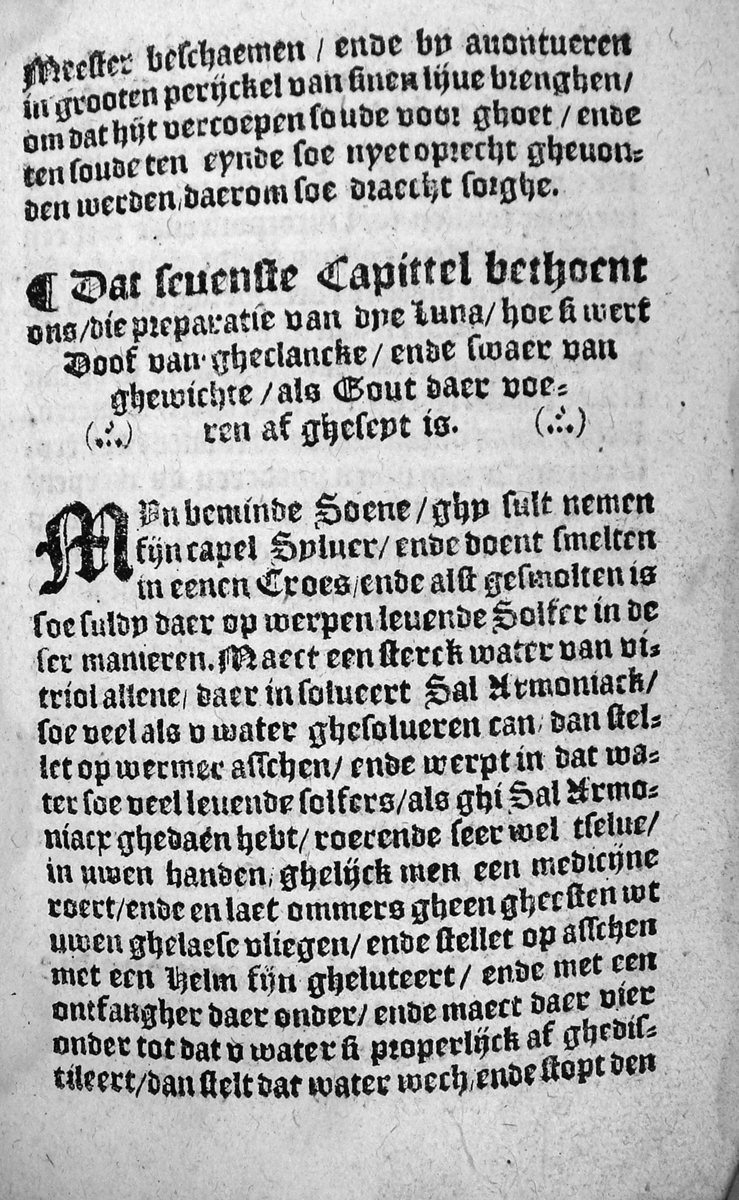 Meester beschaemen / ende by auontueren
in grooten perijckel van sinen lijue brenghen/
om dat hijt vercoepen soude voor ghoet / ende
ten soude ten eynde soe nyet oprecht gheuon⸗
den werden/daerom soe draecht sorghe.
¶ Dat seuenste Capittel bethoent
ons/die preparatie van dye Luna/ hoe si wert
Doof van gheclancke / ende swaer van
ghewichte / als Gout daer voe⸗
(∴) ren af gheseyt is. (∴)
MYn beminde Soene / ghy sult nemen
fijn capel Syluer/ ende doent smelten
in eenen Croes/ende alst gesmolten is
soe suldy daer op werpen leuende Solfer in de
ser manieren. Maect een sterck water van vi⸗
triol allene/ daer in solueert Sal Armoniack/
soe veel als v water ghesolueren can/ dan stel⸗
let op wermer asschen/ ende werpt in dat wa⸗
ter soe veel leuende solfers/als ghi Sal Armo⸗
niacx ghedaen hebt/ roerende seer wel tselue/
in uwen handen/ ghelijck men een medicijne
roert/ende en laet ommers gheen gheesten wt
uwen ghelaese vliegen/ ende stellet op asschen
met een Helm fijn gheluteert / ende met een
ontfangher daer onder/ ende maect daer vier
onder tot dat v water si properlijck af ghedis⸗
tileert/dan stelt dat water wech/ende stopt den